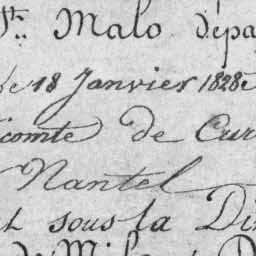 St. Malo dépa
le 18 Janvier 1828
comte de Cur
Nantel
t sous la Di